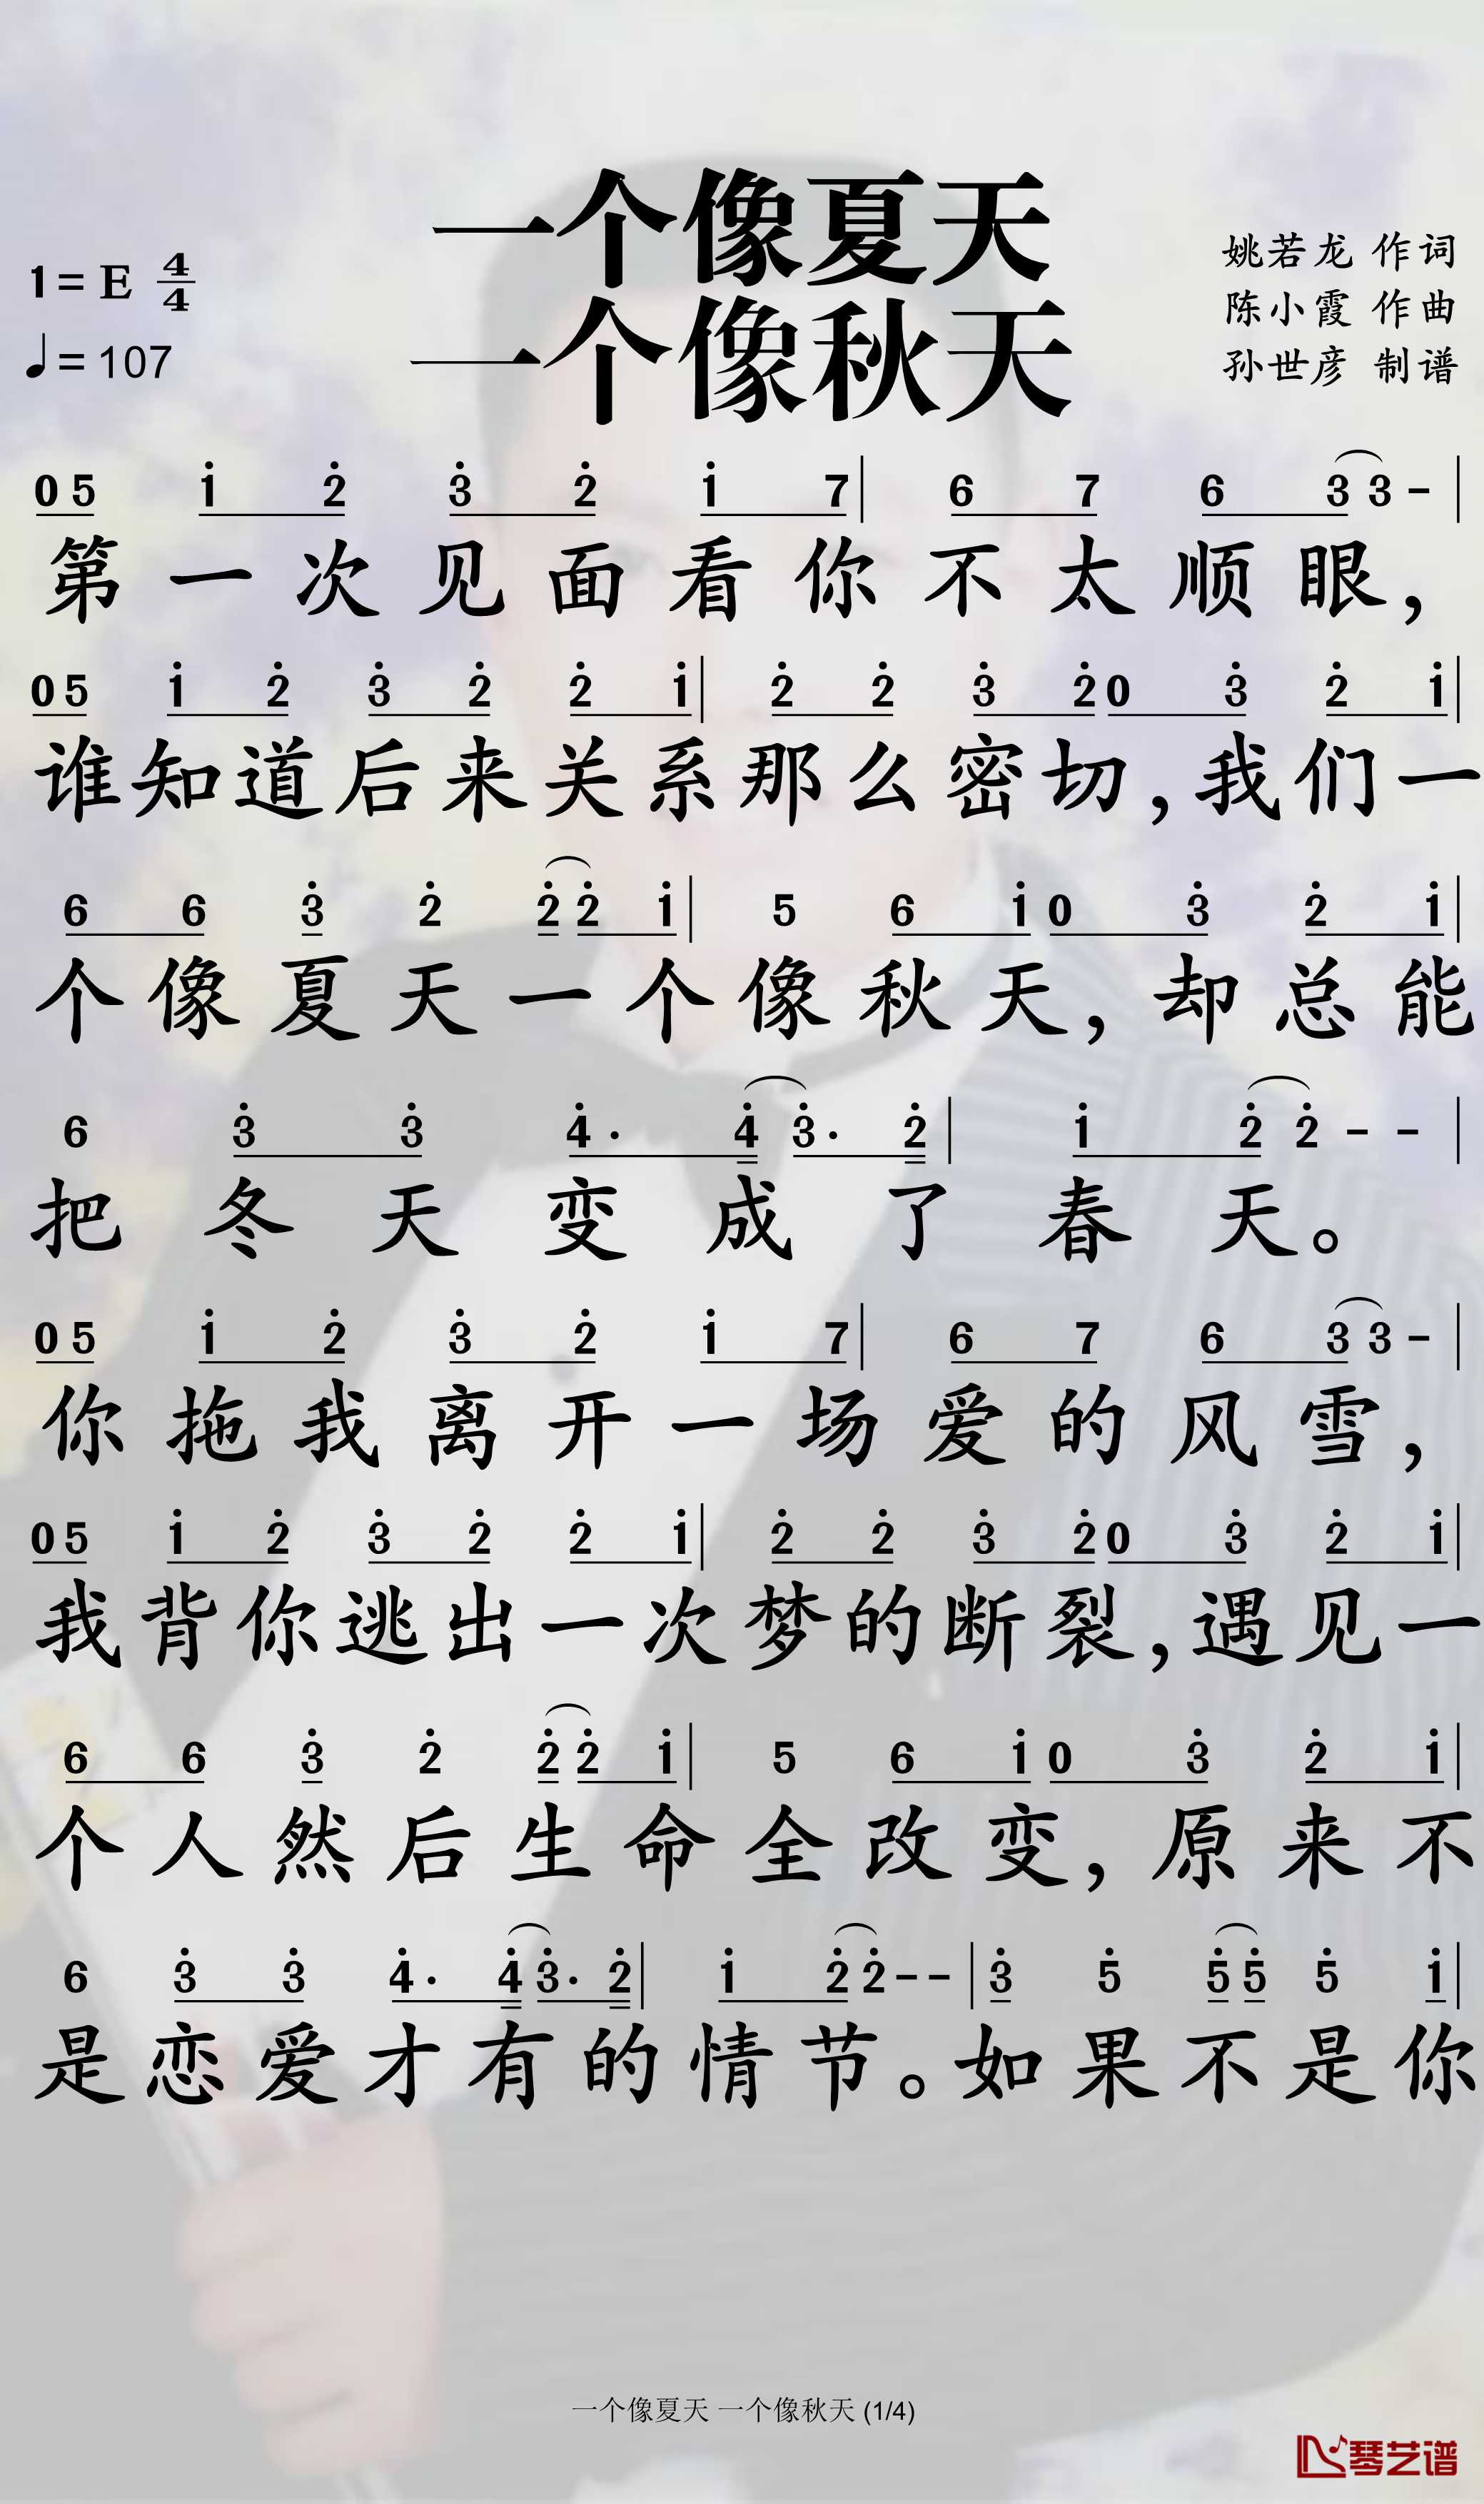 一个像夏天
一个像秋天
1=E 4/4
♩=107
姚若龙 作词
陈小霞 作曲
孙世彦 制谱
0 5 i 2̇ 3̇ 2̇ i 7 | 6 7 6 3̇ 3̇ - |
第一次见面看你不太顺眼，
0 5 i 2̇ 3̇ 2̇ 2̇ i | 2̇ 2̇ 3̇ 2̇ 0 3̇ 2̇ i |
谁知道后来关系那么密切，我们一
6 6 3̇ 2̇ 2̇ 2̇ i | 5 6 i 0 3̇ 2̇ i |
个像夏天一个像秋天，却总能
6 3̇ 3̇ 4̇· 4̇ 3̇· 2̇ | i 2̇ 2̇ - - |
把冬天变成了春天。
0 5 i 2̇ 3̇ 2̇ i 7 | 6 7 6 3 3 - |
你拖我离开一场爱的风雪，
0 5 i 2̇ 3̇ 2̇ 2̇ i | 2̇ 2̇ 3̇ 2̇ 0 3̇ 2̇ i |
我背你逃出一次梦的断裂，遇见一
6 6 3̇ 2̇ 2̇ 2̇ i | 5 6 i 0 3̇ 2̇ i |
个人然后生命全改变，原来不
6 3̇ 3̇ 4̇· 4̇ 3̇· 2̇ | i 2̇ 2̇ - - | 3̇ 5̇ 5̇ 5̇ 5̇ i |
是恋爱才有的情节。如果不是你
一个像夏天 一个像秋天 (1/4)
琴艺谱